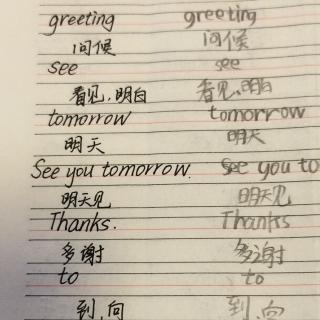 greeting greeting
问候 问候
see see
看见,明白 看见,明白
tomorrow tomorrow
明天 明天
See you tomorrow. See you to
明天见 明天见
Thanks. Thanks
多谢 多谢
to to
到,向 到,向